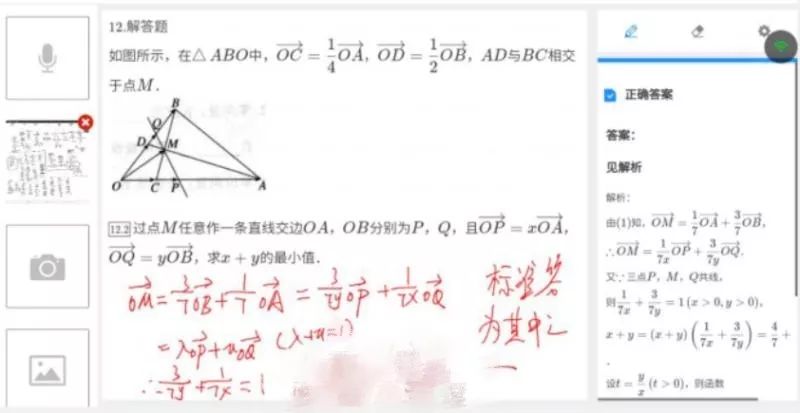 12.解答题
如图所示，在△ABO中，$\overrightarrow{OC}=\frac{1}{4}\overrightarrow{OA}$，$\overrightarrow{OD}=\frac{1}{2}\overrightarrow{OB}$，AD与BC相交
于点M．
B
Q
D
M
O
C
P
A
12.2 过点M任意作一条直线交边OA，OB分别为P，Q，且$\overrightarrow{OP}=x\overrightarrow{OA}$，
$\overrightarrow{OQ}=y\overrightarrow{OB}$，求x+y的最小值．
$\overrightarrow{OM}=\frac{3}{7}\overrightarrow{OB}+\frac{1}{7}\overrightarrow{OA}=\frac{3}{7y}\overrightarrow{OP}+\frac{1}{7x}\overrightarrow{OQ}$
$=\lambda\overrightarrow{OP}+u\overrightarrow{OQ}$ (λ+u=1)
∴$\frac{3}{7y}+\frac{1}{7x}=1$
标准答
为其中之
一
正确答案
答案：
见解析
解析：
由(1)知，$\overrightarrow{OM}=\frac{1}{7}\overrightarrow{OA}+\frac{3}{7}\overrightarrow{OB}$，
∴$\overrightarrow{OM}=\frac{1}{7x}\overrightarrow{OP}+\frac{3}{7y}\overrightarrow{OQ}$．
又∵三点P，M，Q共线，
则$\frac{1}{7x}+\frac{3}{7y}=1(x>0,y>0)$，
$x+y=(x+y)\left(\frac{1}{7x}+\frac{3}{7y}\right)=\frac{4}{7}+$
．
设$t=\frac{y}{x}(t>0)$，则函数